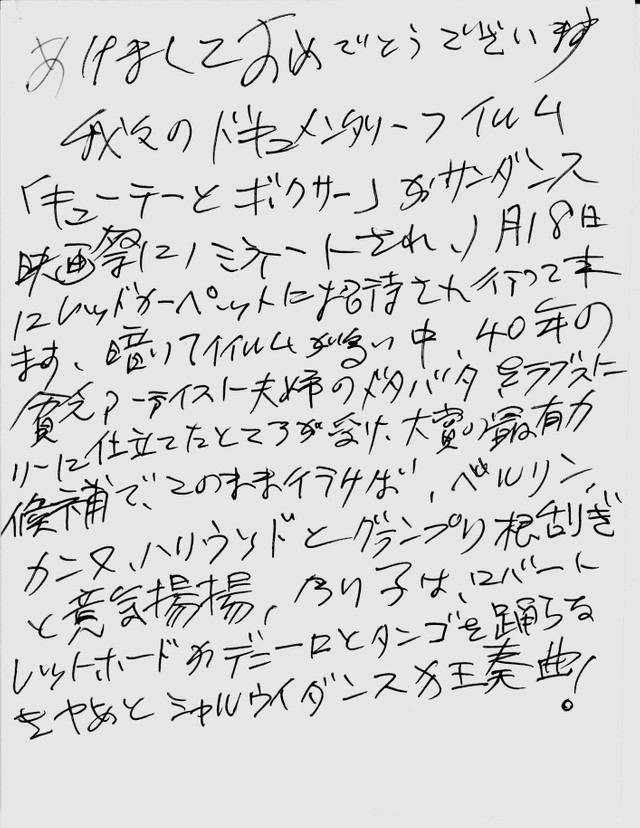 あけましておめでとうございます
我々のドキュメンタリーフイルム
「キューテーとボクサー」がサンダンス
映画祭にノミネートされ、1月18日
にレッドカーペットに招待され行って来
ます、暗いフイルムが多い中、40年の
貧乏アーティスト夫婦のドタバタをラブスト
リーに仕立てたところが受け、大賞の最有力
候補で、このままイラケば、ベルリン、
カンヌ、ハリウッドとグランプリ根刮ぎ
と意気揚揚、乃り子は、ロバート
レットホードかデニーロとタンゴを踊らな
きゃあと シャルウイダンスが王奏曲!